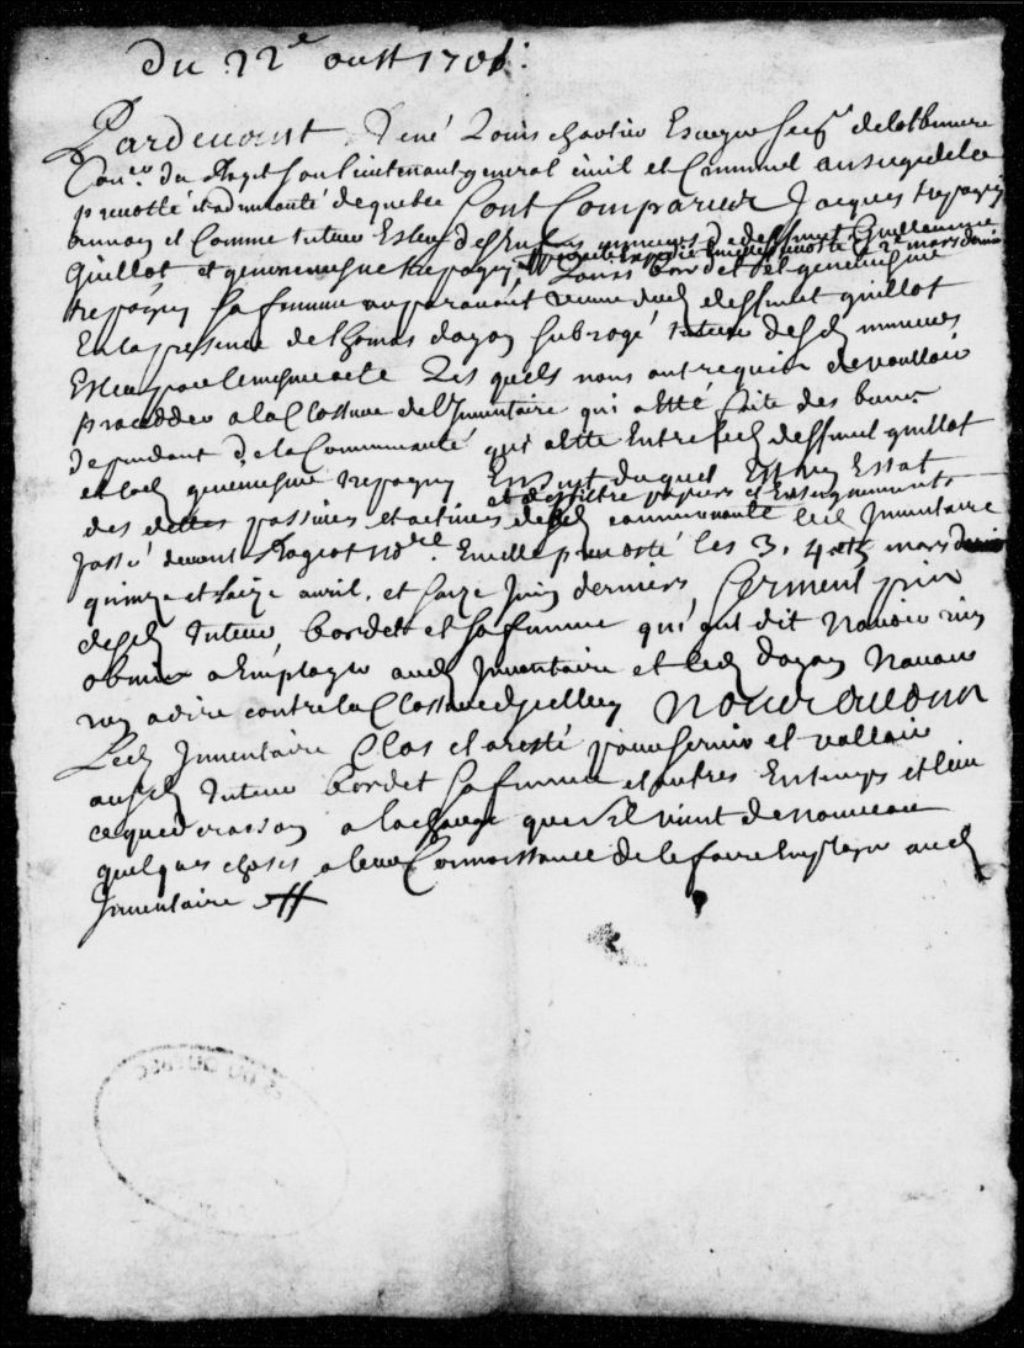 Du 22e oust 1701:
Pardevant René Louis chartier Escuyer seigr delotbiniere
Coner. du Roy et son lieutenant general civil et Criminel au siege dela
prevosté et admirauté de quebec Sont Comparus Jacques trepagny
et Comme tuteur Esleu desEnfans mineurs dedeffunt Guillaume
Guillot et genevieve trepagny par acte expedié en cette prevosté le 2e mars dernier
Louis Bordet et genevieve
trepagny sa femme auparavant veuve dud deffunt guillot
En la presence de thomas doyon subrogé tuteur desd mineurs
Esleu par le mesme acte Les quels nous ont requis de voulloir
procedder a la Closture del'Inventaire qui a Esté faite des biens
dependant de la Communauté qui a esté Entre led deffunt guillot
et lad genevieve trepagny Ensuit duquel Est un Estat
et des tiltre papiers et Enseignements
des debtes passives et actives de lad communauté led Inventaire
passé devant Rageot nore En cette prevosté les 3. 4. et 5 mars
quinze et saize avril, et saize Juin derniers Serment pris
desd tuteur, bordet et sa femme qui ont dit N'avoir rien
obmis a Employer aud Inventaire et led doyon N'avoir
rien a dire contre la Closture d'jcelluy Nous avons
Led Inventaire Clos et aresté pour servir et valloir
ausd tuteur bordet sa femme et autres En temps et lieu
ce que de raison a la charge que s'il vient de nouveau
quelques choses a leur Connoissance de le faire Employer aud
Inventaire